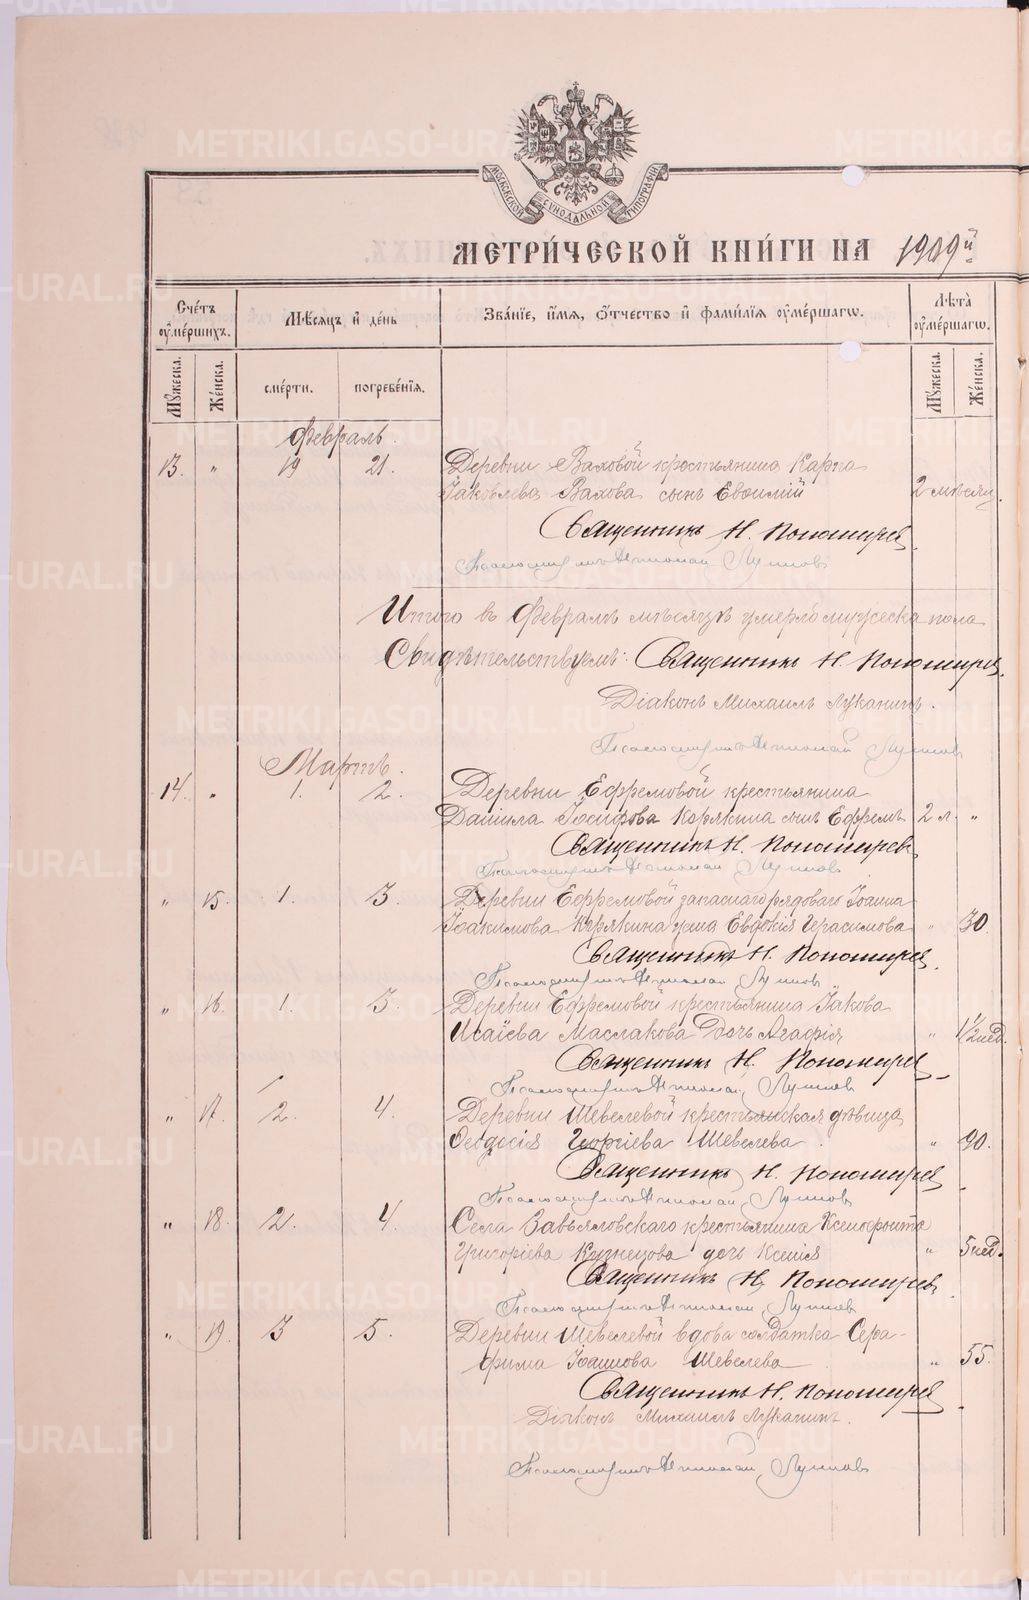 МОСКОВСКОЙ СѴНОДАЛЬНОЙ ТИПОГРАФІИ
МЕТРИ́ЧЕСКОЙ КНИ́ГИ НА 1909й
Сче́тъ ᲂумéршихъ.
Мѣ́сяцъ и де́нь
Зва́нїе, и́мѧ, ѻ҆́тчество и фами́лїѧ ᲂумéршагѡ.
Лѣта̀ ᲂумéршагѡ.
Мꙋ́жеска.
Же́нска.
сме́рти.
погребе́нїѧ.
Мꙋ́жеска.
Же́нска.
Февраль.
13. " 19 21. Деревни Ваховой крестьянина Карпа
Іаковлева Вахова сынъ Евѳимій 2 мѣсяц.
Священникъ Н. Пономарев
Псаломщикъ Николай
Итого въ Февралѣ мѣсяцѣ умерло мужеска пола
Свидѣтельствуемъ: Священникъ Н. Пономарев.
Діаконъ Михаилъ Луканинъ.
Псаломщикъ Николай
Мартъ.
14. " 1. 2. Деревни Ефремовой крестьянина
Даніила Іосифова Корякина сынъ Ефремъ 2 л. "
Священникъ Н. Пономарев
Псаломщикъ Николай
" 15. 1. 3. Деревни Ефремовой запаснаго рядоваго Іоанна
Іоакимова Корякина жена Евдокія Герасимова " 30
Священникъ Н. Пономарев.
Псаломщикъ Николай
" 16. 1. 3. Деревни Ефремовой крестьянина Іакова
Исаіева Маслакова дочь Агафія " 1½ нед.
Священникъ Н. Пономарев
Псаломщикъ Николай
" 17. 2. 4. Деревни Шевелевой крестьянская дѣвица
Ѳеодосія Георгіева Шевелева. " 90.
Священникъ Н. Пономарев.
Псаломщикъ Николай
" 18. 2. 4. Села Завьяловскаго крестьянина Ксенофонта
Григоріева Кузнецова дочь Ксенія " 5 нед.
Священникъ Н. Пономарев.
Псаломщикъ Николай
" 19. 3 5. Деревни Шевелевой вдова солдатка Сера-
фима Іоаннова Шевелева " 55.
Священникъ Н. Пономарев.
Діаконъ Михаилъ Луканинъ.
Псаломщикъ Николай
METRIKI.GASO-URAL.RU